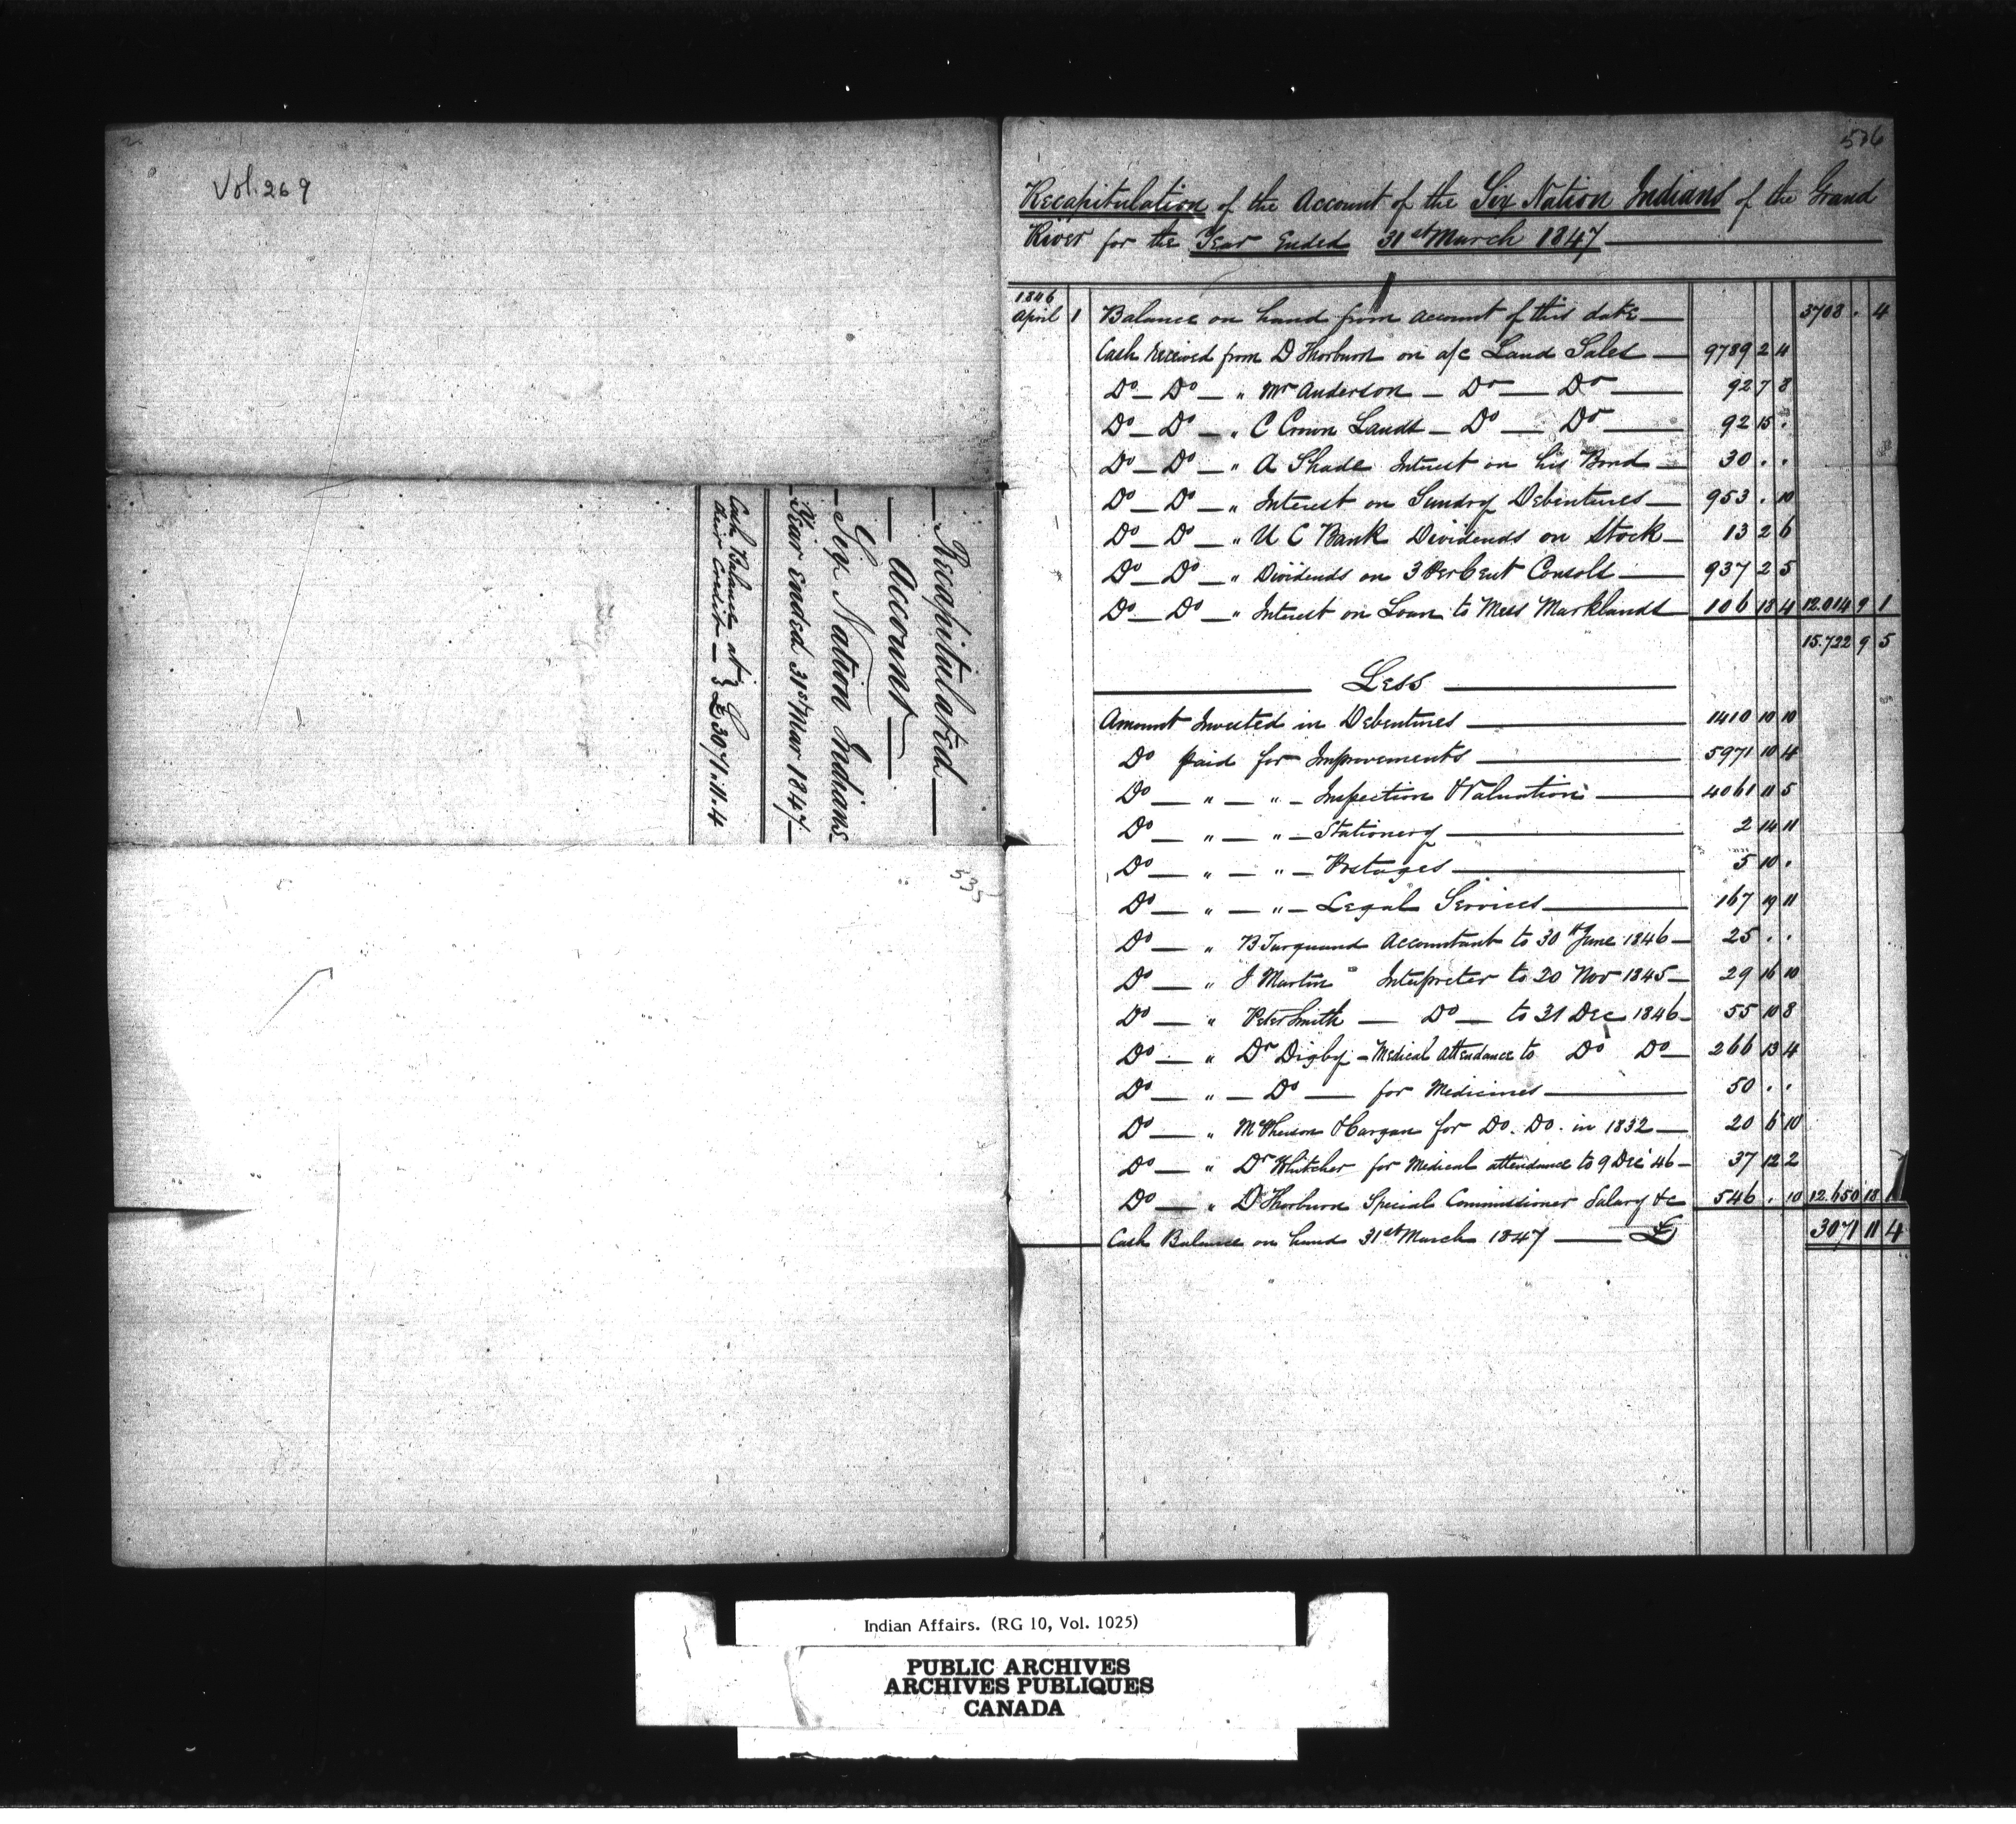 Vol. 269
Recapitulated
Account
Six Nation Indians
Year Ended 31st Mar 1847
Cash Balance at
their Credit £3071.11.4
535
506
Recapitulation of the Account of the Six Nation Indians of the Grand
River for the Year Ended 31st March 1847
1846
April 1 Balance on hand from account of this date 3708 . 4
Cash received from D Thorburn on a/c Land Sales 9789 2 4
Do Do " Mr Anderson Do Do 92 7 8
Do Do " C Crown Lands Do Do 92 15 .
Do Do " A Shade Interest on his Bond 30 . .
Do Do " Interest on Sundry Debentures 953 . 10
Do Do " U C Bank Dividends on Stock 13 2 6
Do Do " Dividends on 3 Per Cent Consols 937 2 5
Do Do " Interest on Loan to Mess Marklands 106 18 4 12.014 9 1
15.722 9 5
Less
Amount Invested in Debentures 1410 10 10
Do paid for Improvements 5971 10 4
Do " " Inspection & Valuation 4061 11 5
Do " " Stationery 2 14 11
Do " " Postages 5 10 .
Do " " Legal Services 167 19 11
Do " B Turquand Accountant to 30th June 1846 25 . .
Do " J Martin Interpreter to 20 Nov 1845 29 16 10
Do " Peter Smith Do to 31 Dec 1846 55 10 8
Do " Dr Digby Medical Attendance to Do Do 266 13 4
Do " Do for Medicines 50 . .
Do " for Do. Do. in 1832 20 6 10
Do " Dr for Medical attendance to 9 Dec 46 37 12 2
Do " D Thorburn Special Commissioner Salary &c 546 . 10 12.650 18 1
Cash Balance on hand 31st March 1847 £ 3071 11 4
Indian Affairs. (RG 10, Vol. 1025)
PUBLIC ARCHIVES
ARCHIVES PUBLIQUES
CANADA